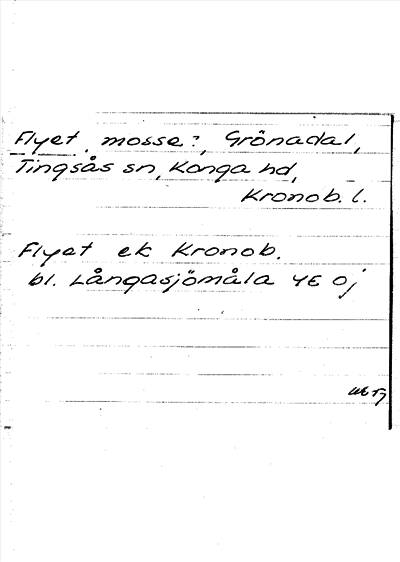 Flyet, mosse?, Grönadal,
Tingsås sn, Konga hd,
Kronob. l.
Flyet ek Kronob.
bl. Långasjömåla 4E Oj